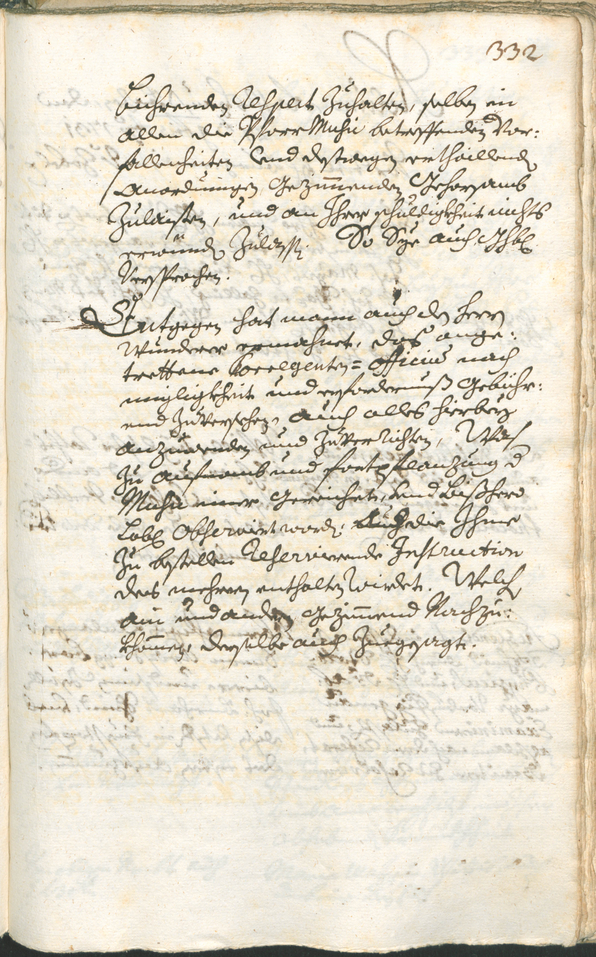 332
bührenden Respect zuhalten, selben in
allen die Pfarr Music betreffenden Vor:
fallenheiten und destwegen erthaillende
Anordnungen gezimmenden Gehorsamb
zulaisten, und an Ihrer schuldigkheit nichts
erwünden zulassen. So Sye auch Ihbl
versprochen.
Entgegen hat mann auch den Herrn
Wunderer ermahnet, das ange:
trettene Corregenten= officium nach
mögligkheit und erfordernuß gebühr:
end zuversehen, auch alles hierbey
anzuwenden und zuverrichten, Was
zu aufnamb und fortpflanzung d
Music immer gereichet, und bißhero
lobl observirt worden; auch die Ihme
zu bestellen Reservierende Instruction
des mehrern enthalten würdet. Welch
ain und anderm gezimmend Nachzu:
khommen, derselbe auch zuegesagt.